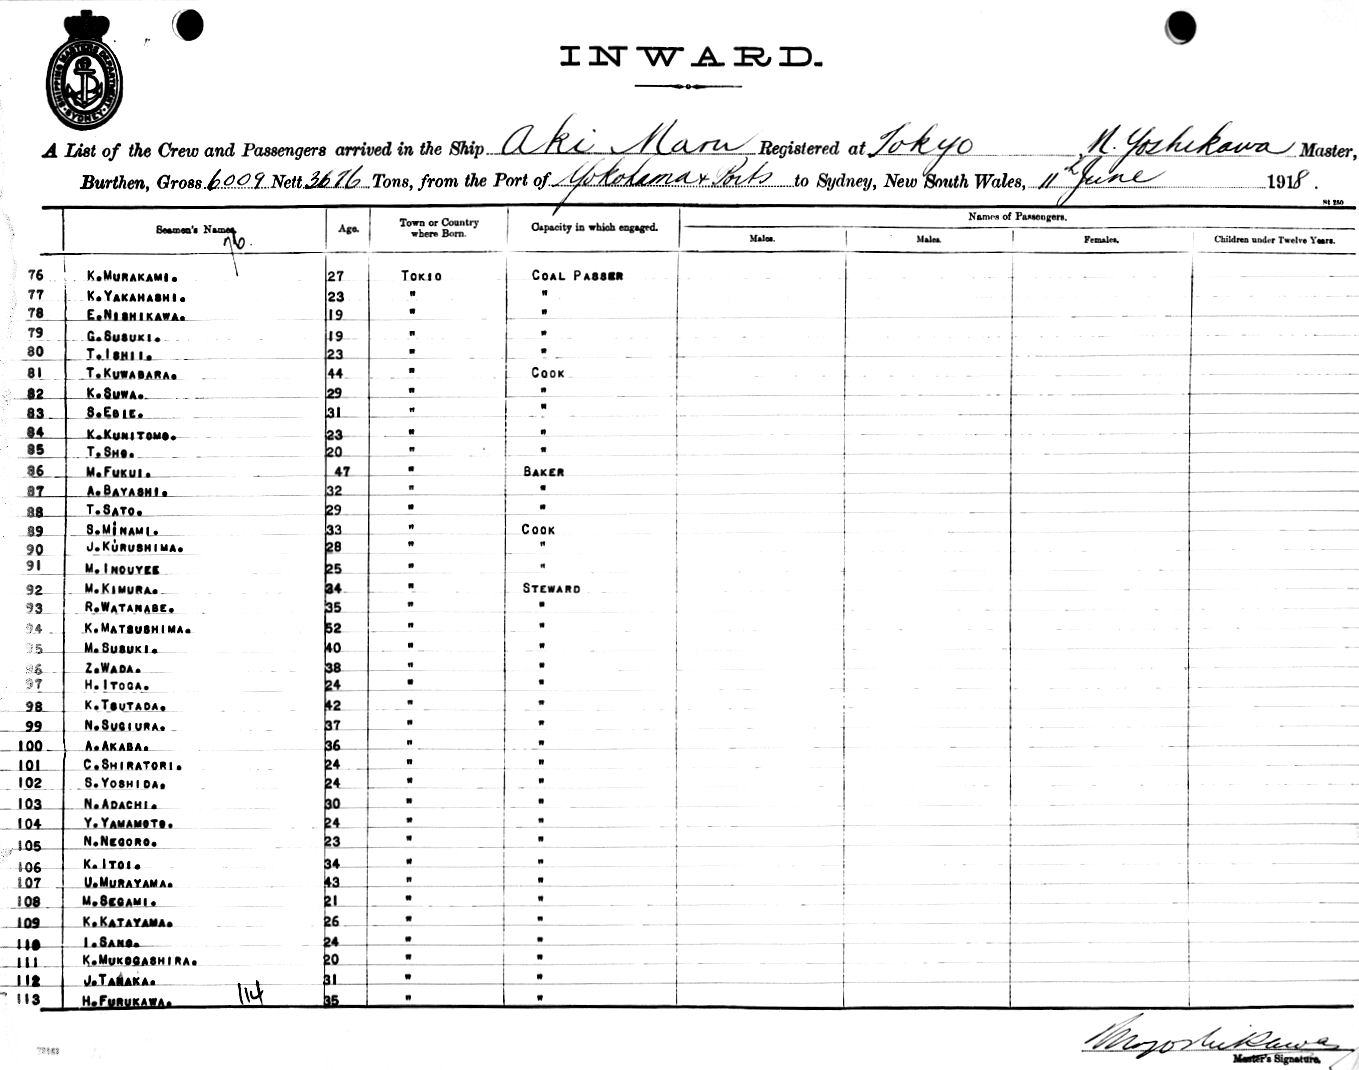 SHIPPING MASTERS DEPARTMENT
SYDNEY
INWARD.
A List of the Crew and Passengers arrived in the Ship Aki Maru Registered at Tokyo M. Yoshikawa Master,
Burthen, Gross 6009 Nett 3676 Tons, from the Port of Yokohama & Ports to Sydney, New South Wales, 11th June 1918.
St 250
Seamen's Names Age. Town or Country where Born. Capacity in which engaged. Names of Passengers.
Males. Males. Females. Children under Twelve Years.
76
76 K.MURAKAMI. 27 TOKIO COAL PASSER
77 K.YAKAHASHI. 23 " "
78 E.NISHIKAWA. 19 " "
79 G.SUSUKI. 19 " "
80 T.ISHII. 23 " "
81 T.KUWABARA. 44 " COOK
82 K.SUWA. 29 " "
83 S.EBIE. 31 " "
84 K.KUNITOMO. 23 " "
85 T.SHO. 20 " "
86 M.FUKUI. 47 " BAKER
87 A.BAYASHI. 32 " "
88 T.SATO. 29 " "
89 S.MINAMI. 33 " COOK
90 J.KURUSHIMA. 28 " "
91 M.INOUYEE 25 " "
92 M.KIMURA. 34 " STEWARD
93 R.WATANABE. 35 " "
94 K.MATSUSHIMA. 52 " "
95 M.SUSUKI. 40 " "
96 Z.WADA. 38 " "
97 H.ITOGA. 24 " "
98 K.TSUTADA. 42 " "
99 N.SUGIURA. 37 " "
100 A.AKABA. 36 " "
101 C.SHIRATORI. 24 " "
102 S.YOSHIDA. 24 " "
103 N.ADACHI. 30 " "
104 Y.YAMAMOTO. 24 " "
105 N.NEGORO. 23 " "
106 K.ITOI. 34 " "
107 U.MURAYAMA. 43 " "
108 M.SEGAMI. 21 " "
109 K.KATAYAMA. 26 " "
110 I.SANO. 24 " "
111 K.MUKOGASHIRA. 20 " "
112 J.TANAKA. 31 " "
113 H.FURUKAWA. 35 " "
114
M. Yoshikawa
Master's Signature.